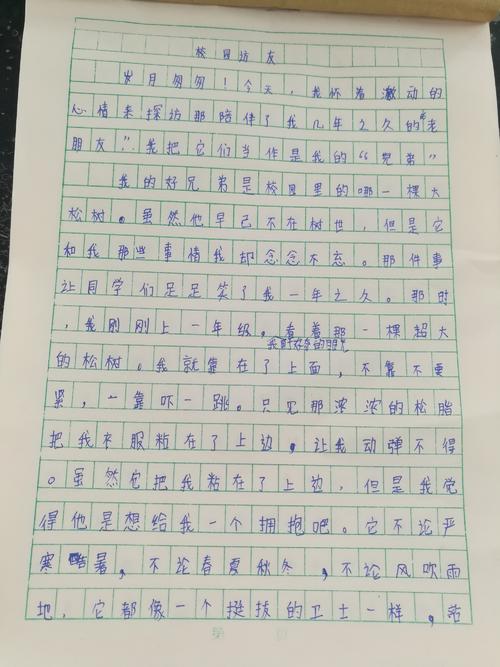 校园访友
岁月匆匆！今天，我怀着激动的
心情来探访那陪伴了我几年之久的“老
朋友”。我把它们当作是我的“兄弟”
我的好兄弟是校园里的哪一棵大
松树。虽然他早已不在树世，但是它
和我那些事情我却念念不忘。那件事
让同学们足足笑了我一年之久。那时
，我刚刚上一年级。看着那一棵超大
的松树。我就靠在了上面，不靠不要
紧，一靠吓一跳。只见那浓浓的松脂
把我衣服粘在了上边，让我动弹不得
。虽然它把我粘在了上边，但是我觉
得他是想给我一个拥抱吧。它不论严
寒酷暑，不论春夏秋冬，不论风吹雨
地，它都像一个挺拔的卫士一样，站
第 页